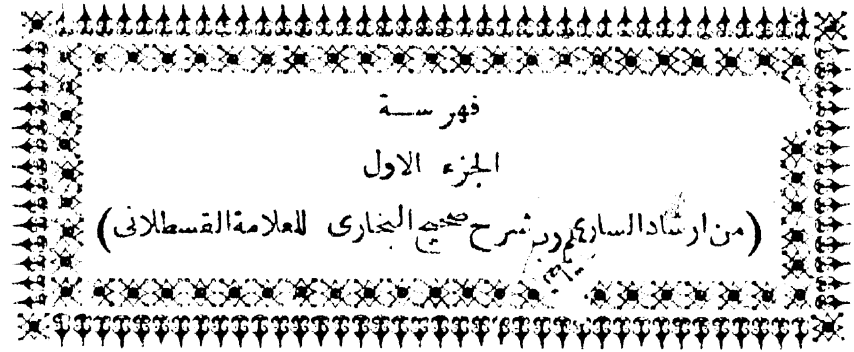 فهرسة
الجزء الاول
(من ارشاد السارى شرح صحيح البخارى للعلامة القسطلانى)